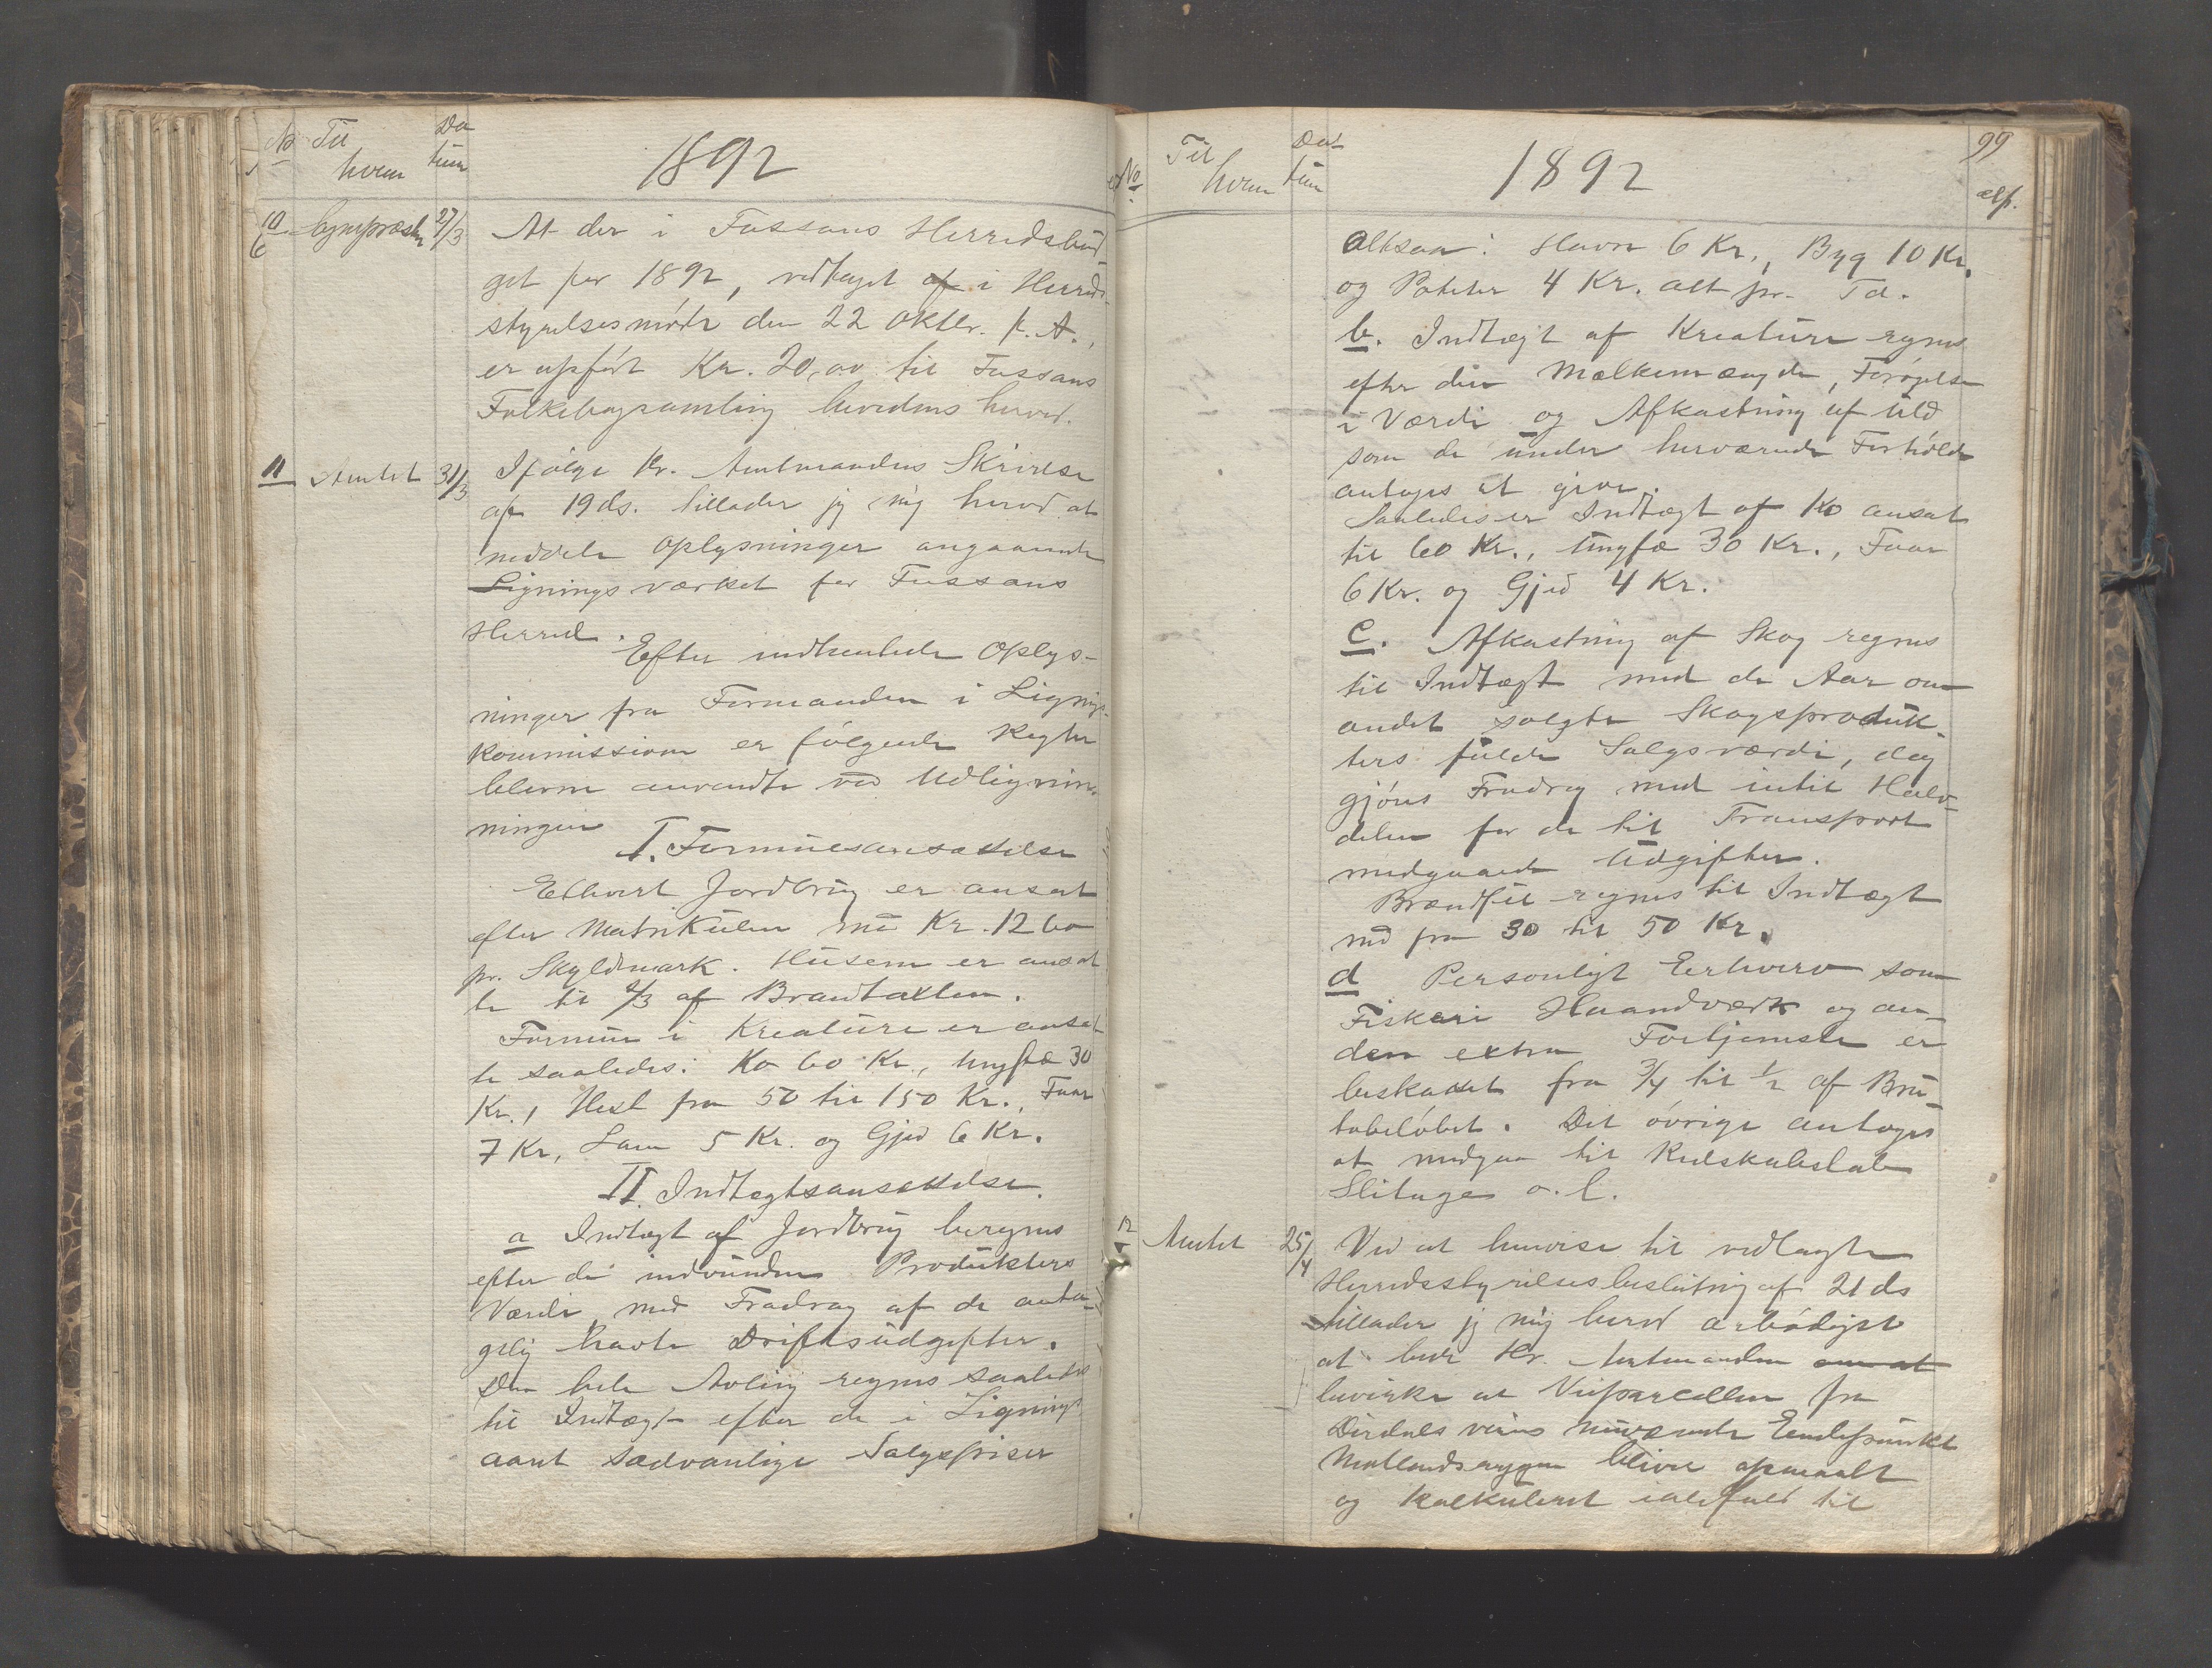 No Til hvem Da tum 1892
10 Sognepræsten 27/3 At der i Fossans Herredsbud
get for 1892, vedtaget af i Herreds-
styrelsesmøde den 22 Oktbr. f. A.,
er opført Kr. 20,00 til Fossans
Folkebogsamling bevidnes herved.
11 Amtet 31/3 Ifølge Hr. Amtmandens Skrivelse
af 19 ds. tillader jeg mig herved at
meddele Oplysninger angaaende
Ligningsværket for Fossans
Herred.
Efter indhentede Oplys-
ninger fra Formanden i Lignings-
kommissionen er følgende Regler
bleven anvendte ved Udlignin-
ningen
I. Formuesansættelse
Ethvert Jordbrug er ansat
efter Matrikulen med Kr. 1200
pr. Skyldmark. Husene er ansat
te til 2/3 af Brandtaxten.
Formue i Kreature er ansat
te saaledes: Ko 60 Kr., Ungfæ 30
Kr., Hest fra 50 til 150 Kr., Faar
7 Kr, Lam 5 Kr. og Gjed 6 Kr.
II Indtægtsansættelse.
a Indtægt af Jordbrug beregnes
efter de indvundne Produkters
Værdi, med Fradrag af de anta-
gelig havte Driftsudgifter.
Den hele Avling regnes saaledes
til Indtægt efter de i Lignings
aaret sædvanlige Salgspriser
No Til hvem Da- tum 1892 99
altsaa: Havre 6 Kr., Byg 10 Kr.
og Poteter 4 Kr. alt pr. Td.
b. Indtægt af Kreature regnes
efter den Mælkemængde, Forøgelse
i Værdi og Afkastning af Uld
som de under herværende Forholde
antages at give.
Saaledes er Indtægt af Ko ansat
til 60 Kr., Ungfæ 30 Kr., Faar
6 Kr. og Gjed 4 Kr.
c. Afkastning af Skog regnes
til Indtægt med de Aar om
andet solgte Skogsproduk-
ters fulde Salgsværdi, dog
gjøres Fradrag med indtil Halv-
delen for de til Transport
medgaaede Udgifter.
Brændsel regnes til Indtægt
med fra 30 til 50 Kr.
d Personligt Eerhverv som
Fiskeri Haandværk og an-
den extra Fortjeneste er
beskattet fra 3/4 til 1/2 af Bru-
tobeløbet. Det øvrige antages
at medgaa til Redskabslab
Slitage o. l.
12 Amtet 25/4 Ved at henvise til vedlagte
Herredsstyrelsesbeslutning af 21 ds
tillader jeg mig herved ærbødigst
at bede Hr. Amtmanden om at
bevirke at Veiparcellen fra
Dirdals veiens nuværende Endepunkt
blivre opmaalt
og kalkuleret ialfald til